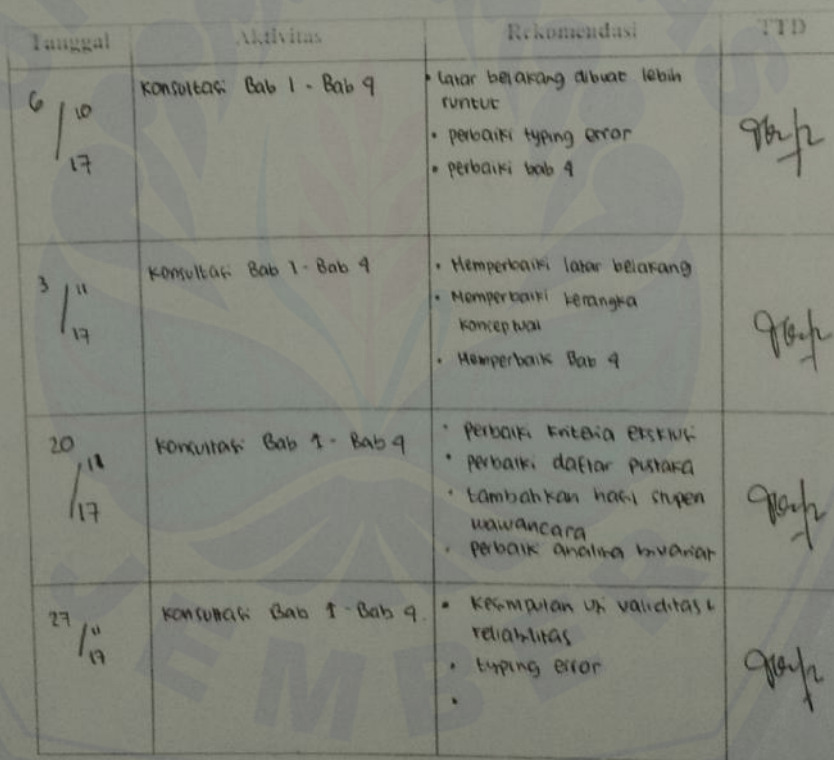 Tanggal Aktivitas Rekomendasi TTD
6/10/17 Konsultasi Bab 1 - Bab 4 • Latar belakang dibuat lebih
runtut
• perbaiki typing error
• perbaiki bab 4
3/11/17 Konsultasi Bab 1 - Bab 4 • Memperbaiki latar belakang
• Memperbaiki kerangka
konseptual
• Memperbaik Bab 4
20/11/17 Konsultasi Bab 1 - Bab 4 • perbaiki kriteria eksklusi
• perbaiki daftar pustaka
• tambahkan hasil stupen
wawancara
• perbaik analisa bivariat
27/11/17 Konsultasi Bab 1 - Bab 4. • Kesimpulan uji validitas &
reliabilitas
• typing error
•
JEMBER